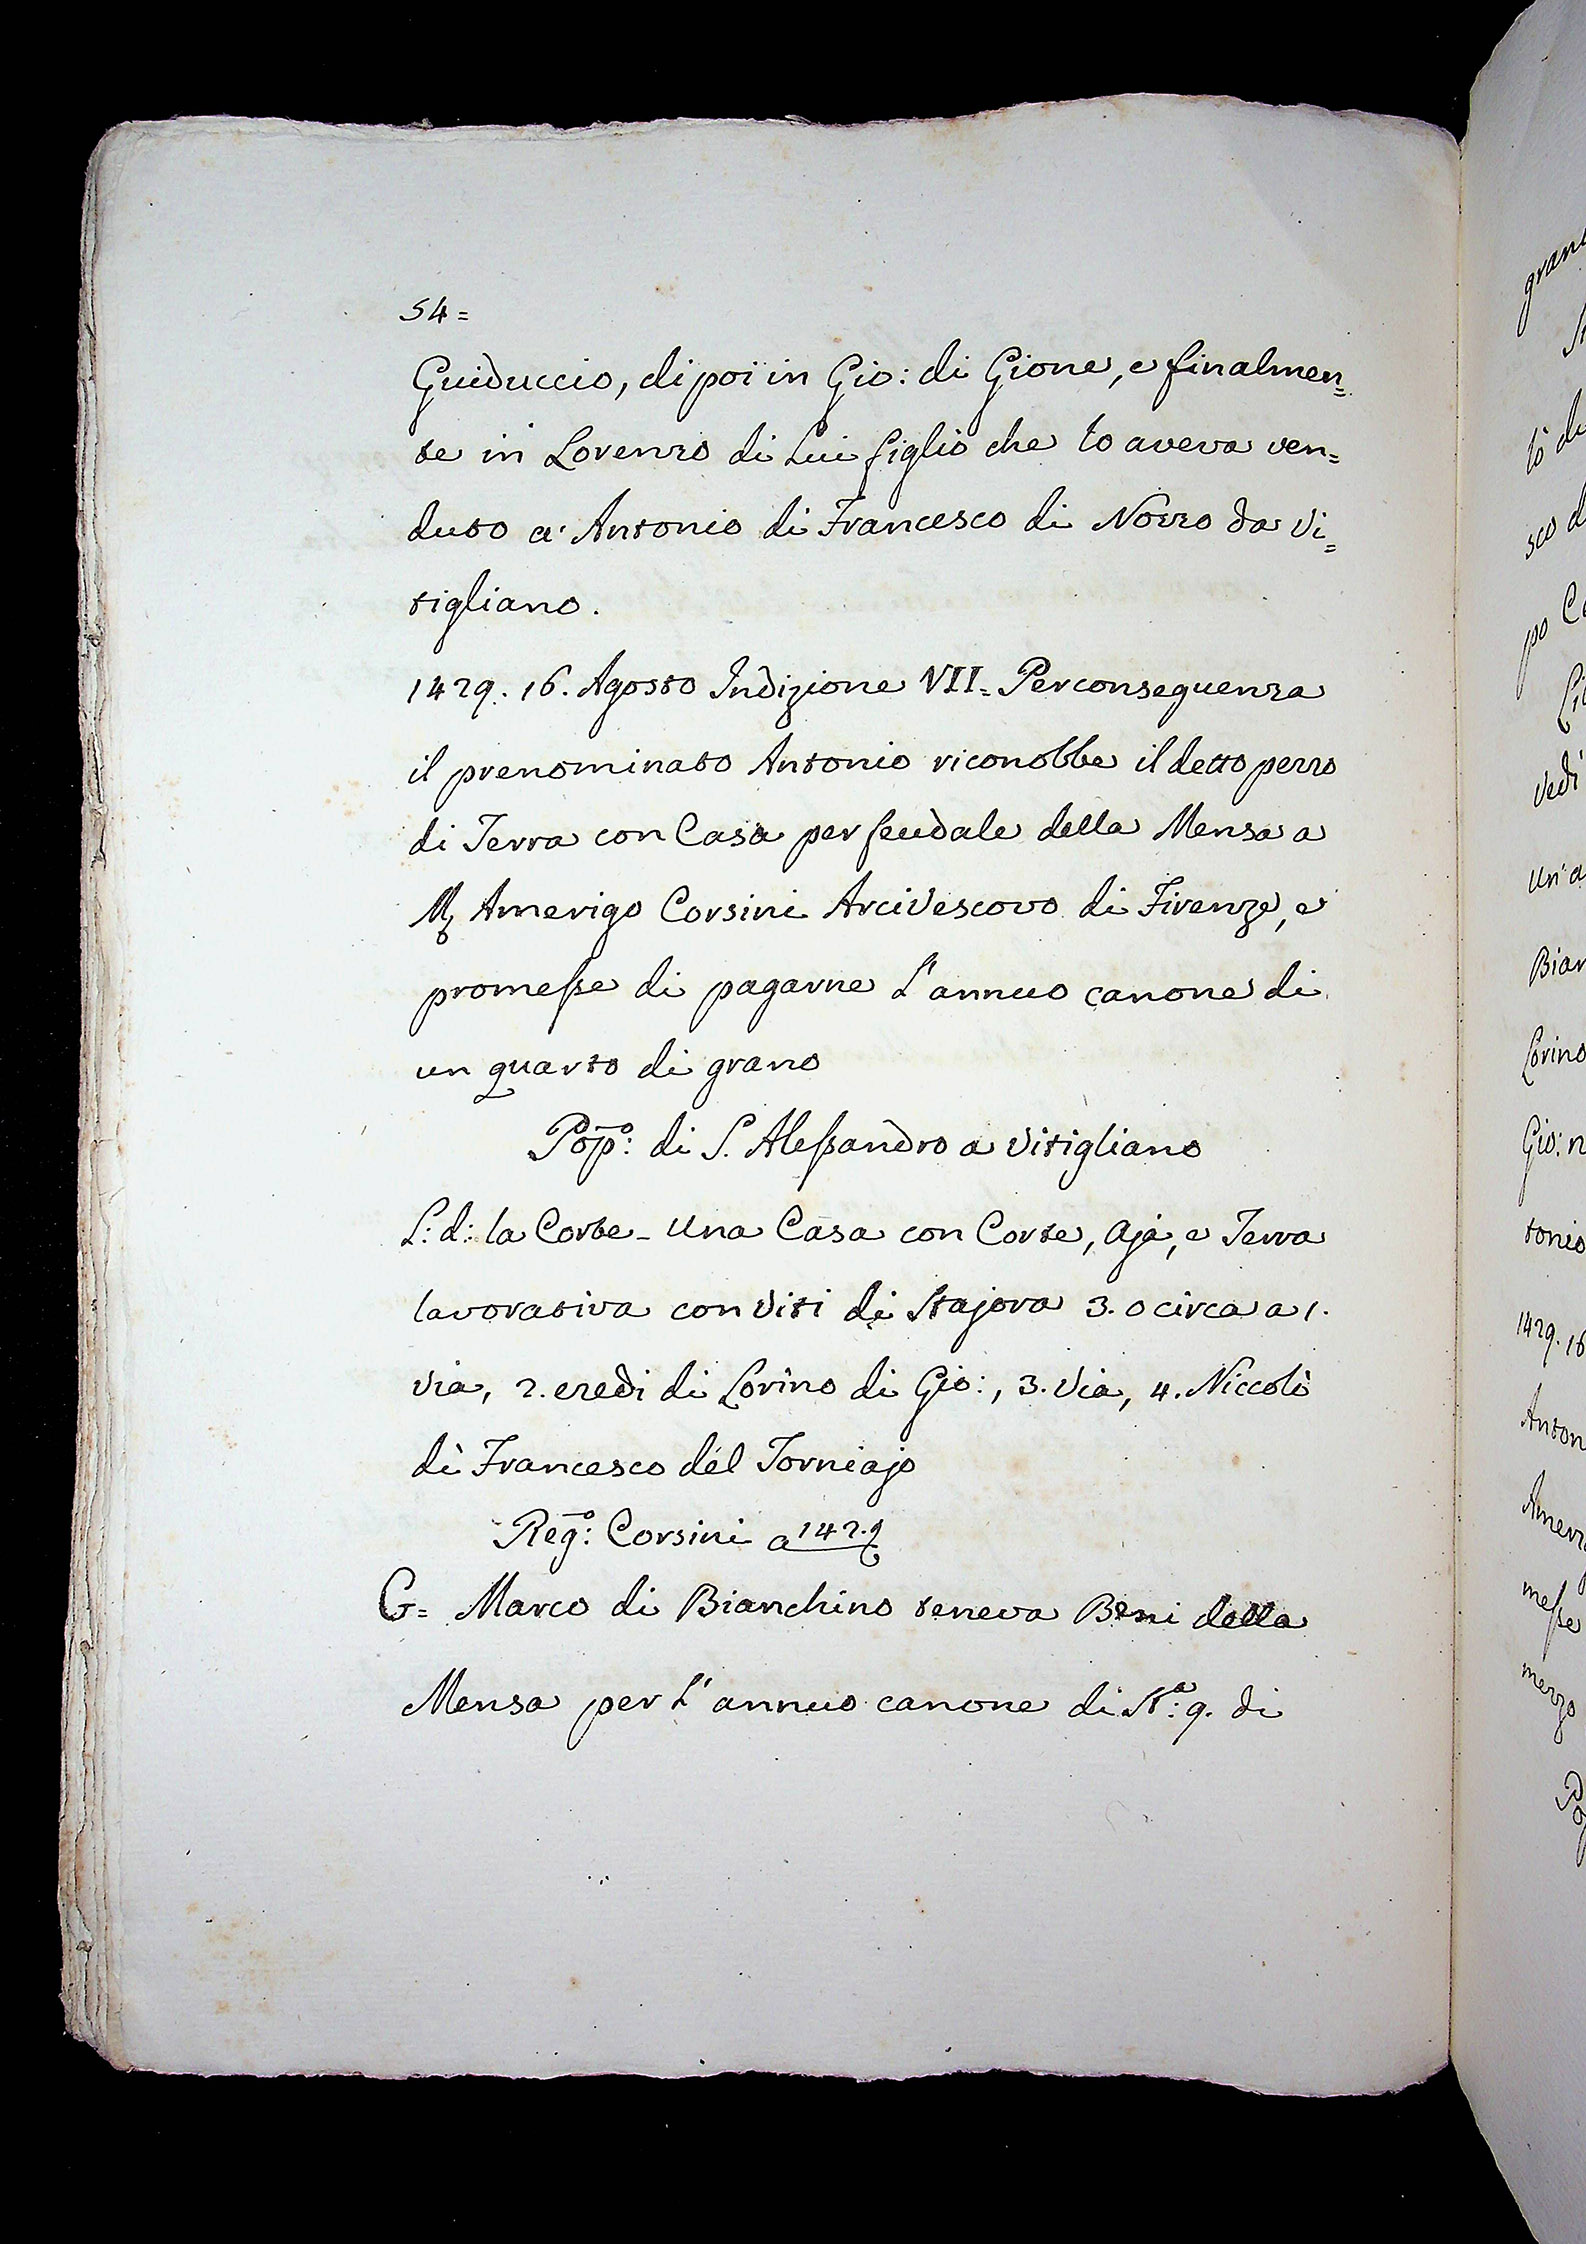 54=
Guiduccio, di poi in Gio: di Gione, e finalmen=
te in Lorenzo di Lui figlio che lo aveva ven=
duto a' Antonio di Francesco di Nozzo da Vi=
tigliano.
1429. 16. Agosto Indizione VII= Per conseguenza
il prenominato Antonio riconobbe il detto pezzo
di Terra con Casa per feudale della Mensa a
Mr Amerigo Corsini Arcivescovo di Firenze, e
promesse di pagarne L'annuo canone di
un quarto di grano
Popo: di S. Alessandro a Vitigliano
L: d: la Corte - Una Casa con Corte, Aja, e Terra
lavorativa con Viti di Stajora 3. o circa a 1.
via, 2. eredi di Lorino di Gio:, 3. Via, 4. Niccolò
di Francesco del Torniajo
Rego: Corsini a 1429
G= Marco di Bianchino teneva Beni della
Mensa per L'annuo canone di Sta: 9. di
gran
lo di
sco d
po C
Vedi
Un' a
Bian
Lorino
Gio: n
tonio
1429. 16
Anton
Amer
messe
mezzo